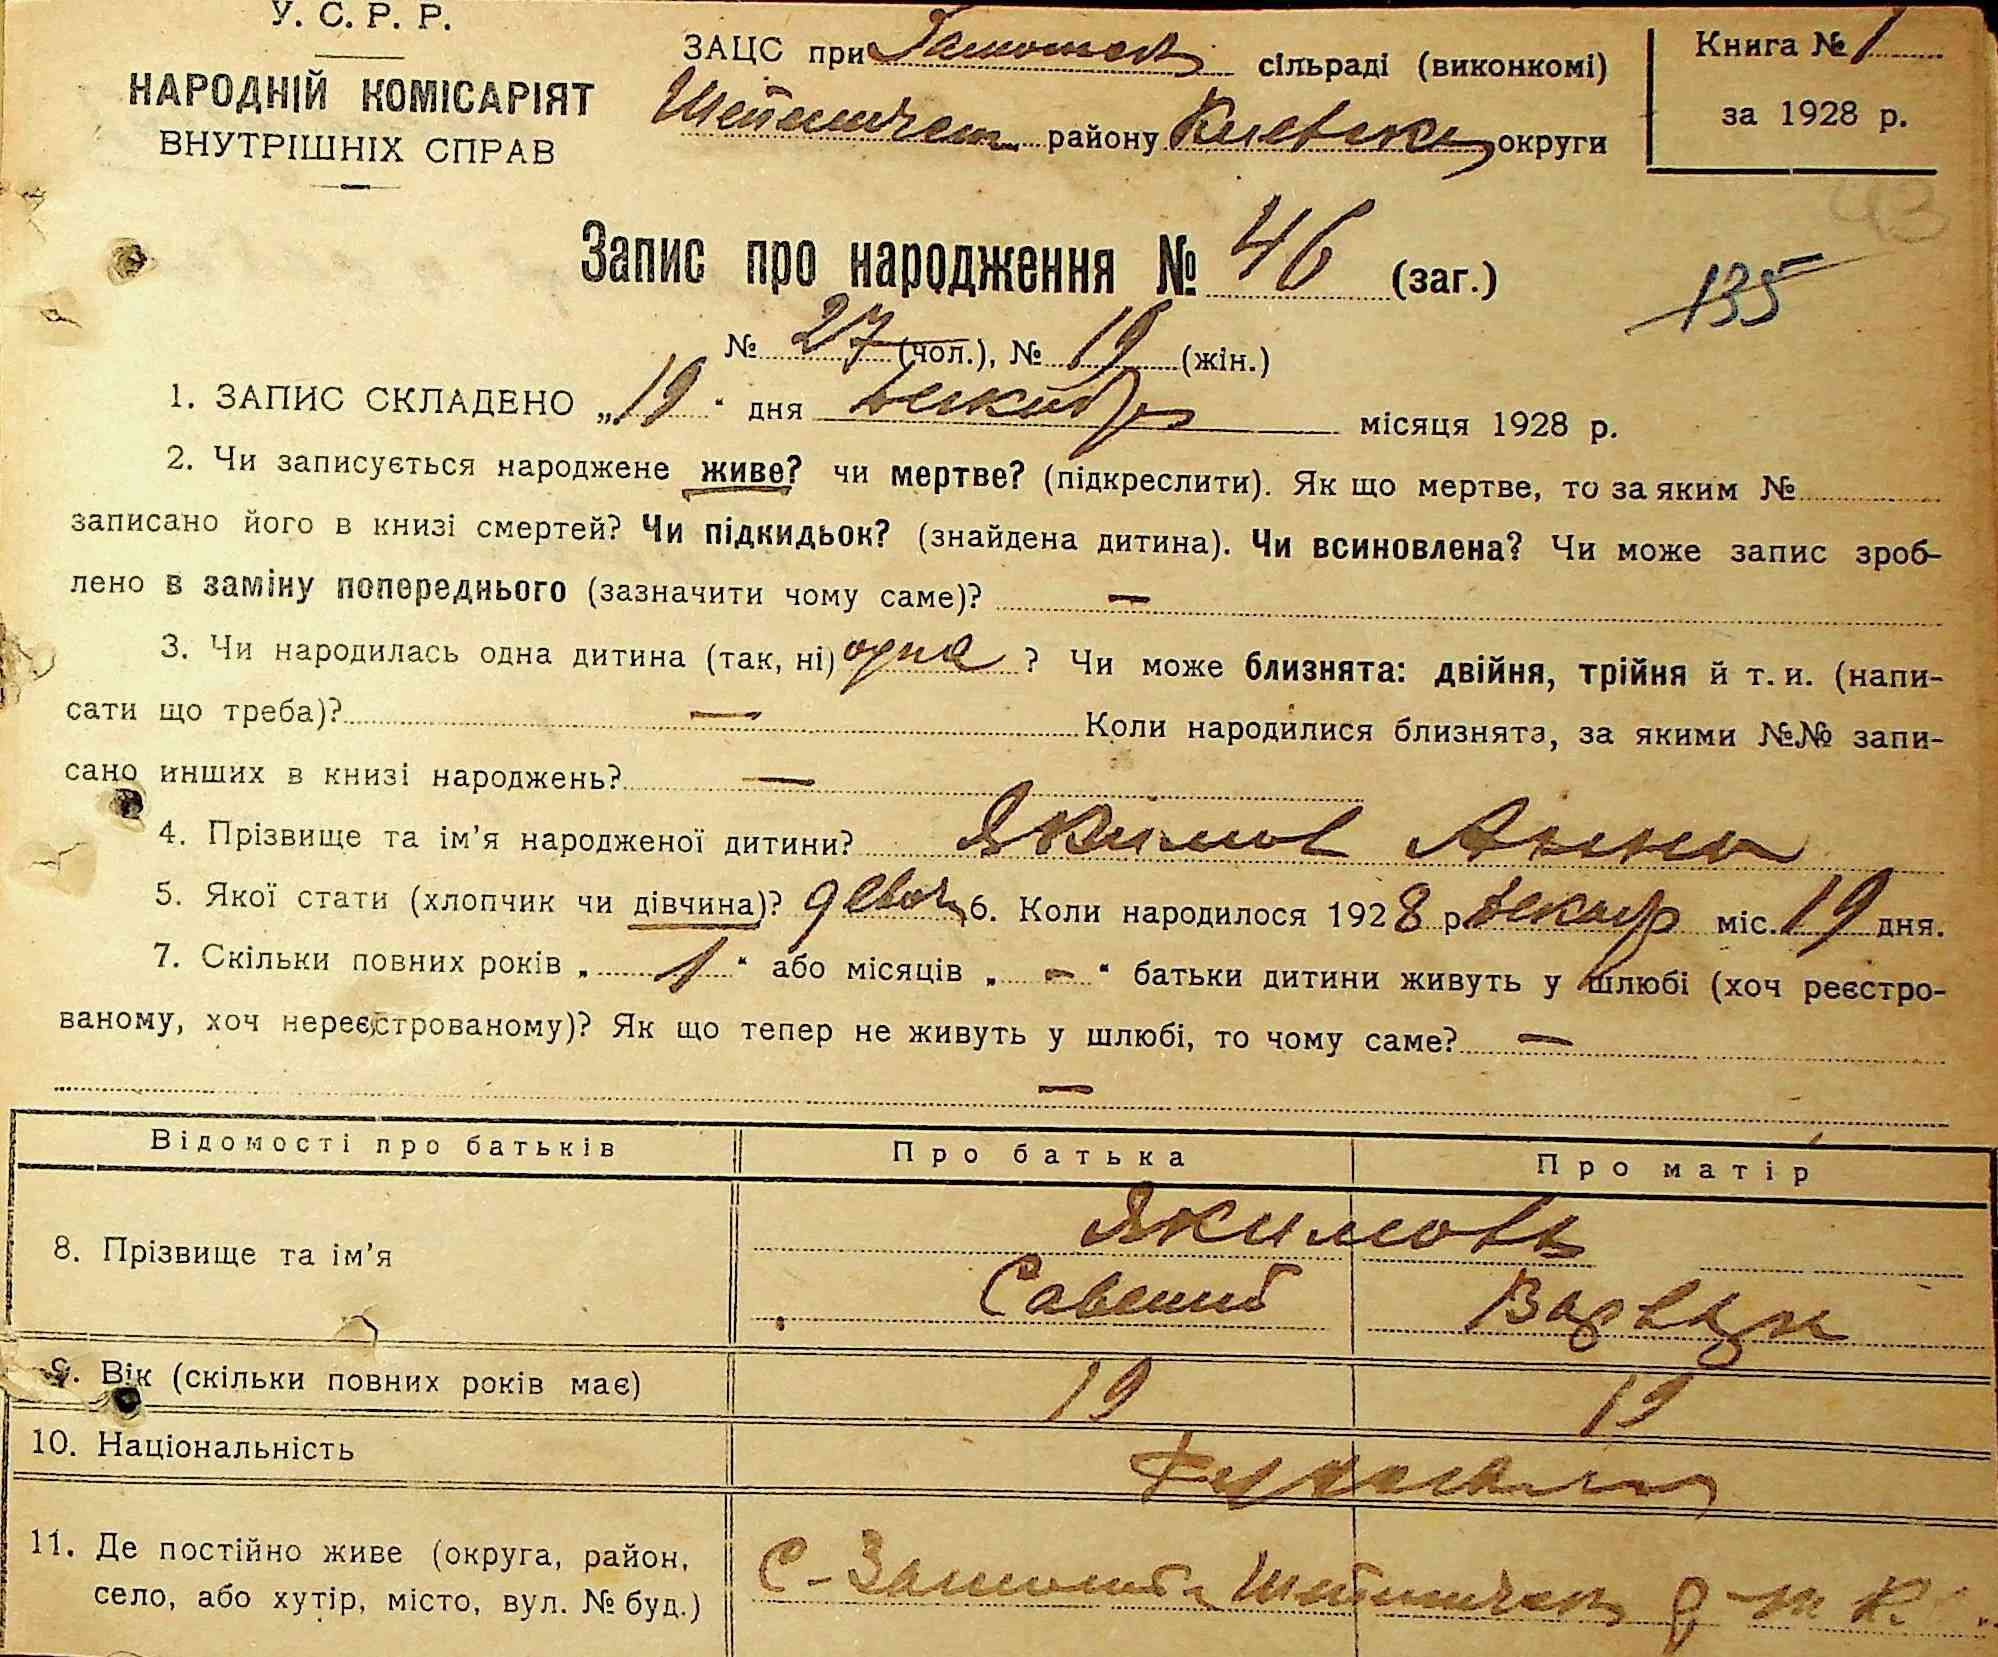 У. С. Р. Р.
НАРОДНІЙ КОМІСАРІЯТ
ВНУТРІШНІХ СПРАВ
ЗАЦС при сільраді (виконкомі)
району округи
Книга № 1
за 1928 р.
43
Запис про народження № 46 (заг.)
135
№ 27 (чол.), № 19 (жін.)
1. ЗАПИС СКЛАДЕНО „19“ дня Декабр місяця 1928 р.
2. Чи записується народжене живе? чи мертве? (підкреслити). Як що мертве, то за яким №
записано його в книзі смертей? Чи підкидьок? (знайдена дитина). Чи всиновлена? Чи може запис зроб-
лено в заміну попереднього (зазначити чому саме)? —
3. Чи народилась одна дитина (так, ні) одна ? Чи може близнята: двійня, трійня й т. и. (напи-
сати що треба)? — Коли народилися близнята, за якими №№ запи-
сано инших в книзі народжень? —
4. Прізвище та ім'я народженої дитини? Якимов Анна
5. Якої стати (хлопчик чи дівчина)? 6. Коли народилося 1928 р. міс. 19 дня.
7. Скільки повних років „ 1 “ або місяців „ - “ батьки дитини живуть у шлюбі (хоч реєстро-
ваному, хоч нереєстрованому)? Як що тепер не живуть у шлюбі, то чому саме? —
—
Відомості про батьків Про батька Про матір
8. Прізвище та ім'я Якимовы
Савелий Варвара
9. Вік (скільки повних років має) 19 19
10. Національність
11. Де постійно живе (округа, район,
село, або хутір, місто, вул. № буд.)